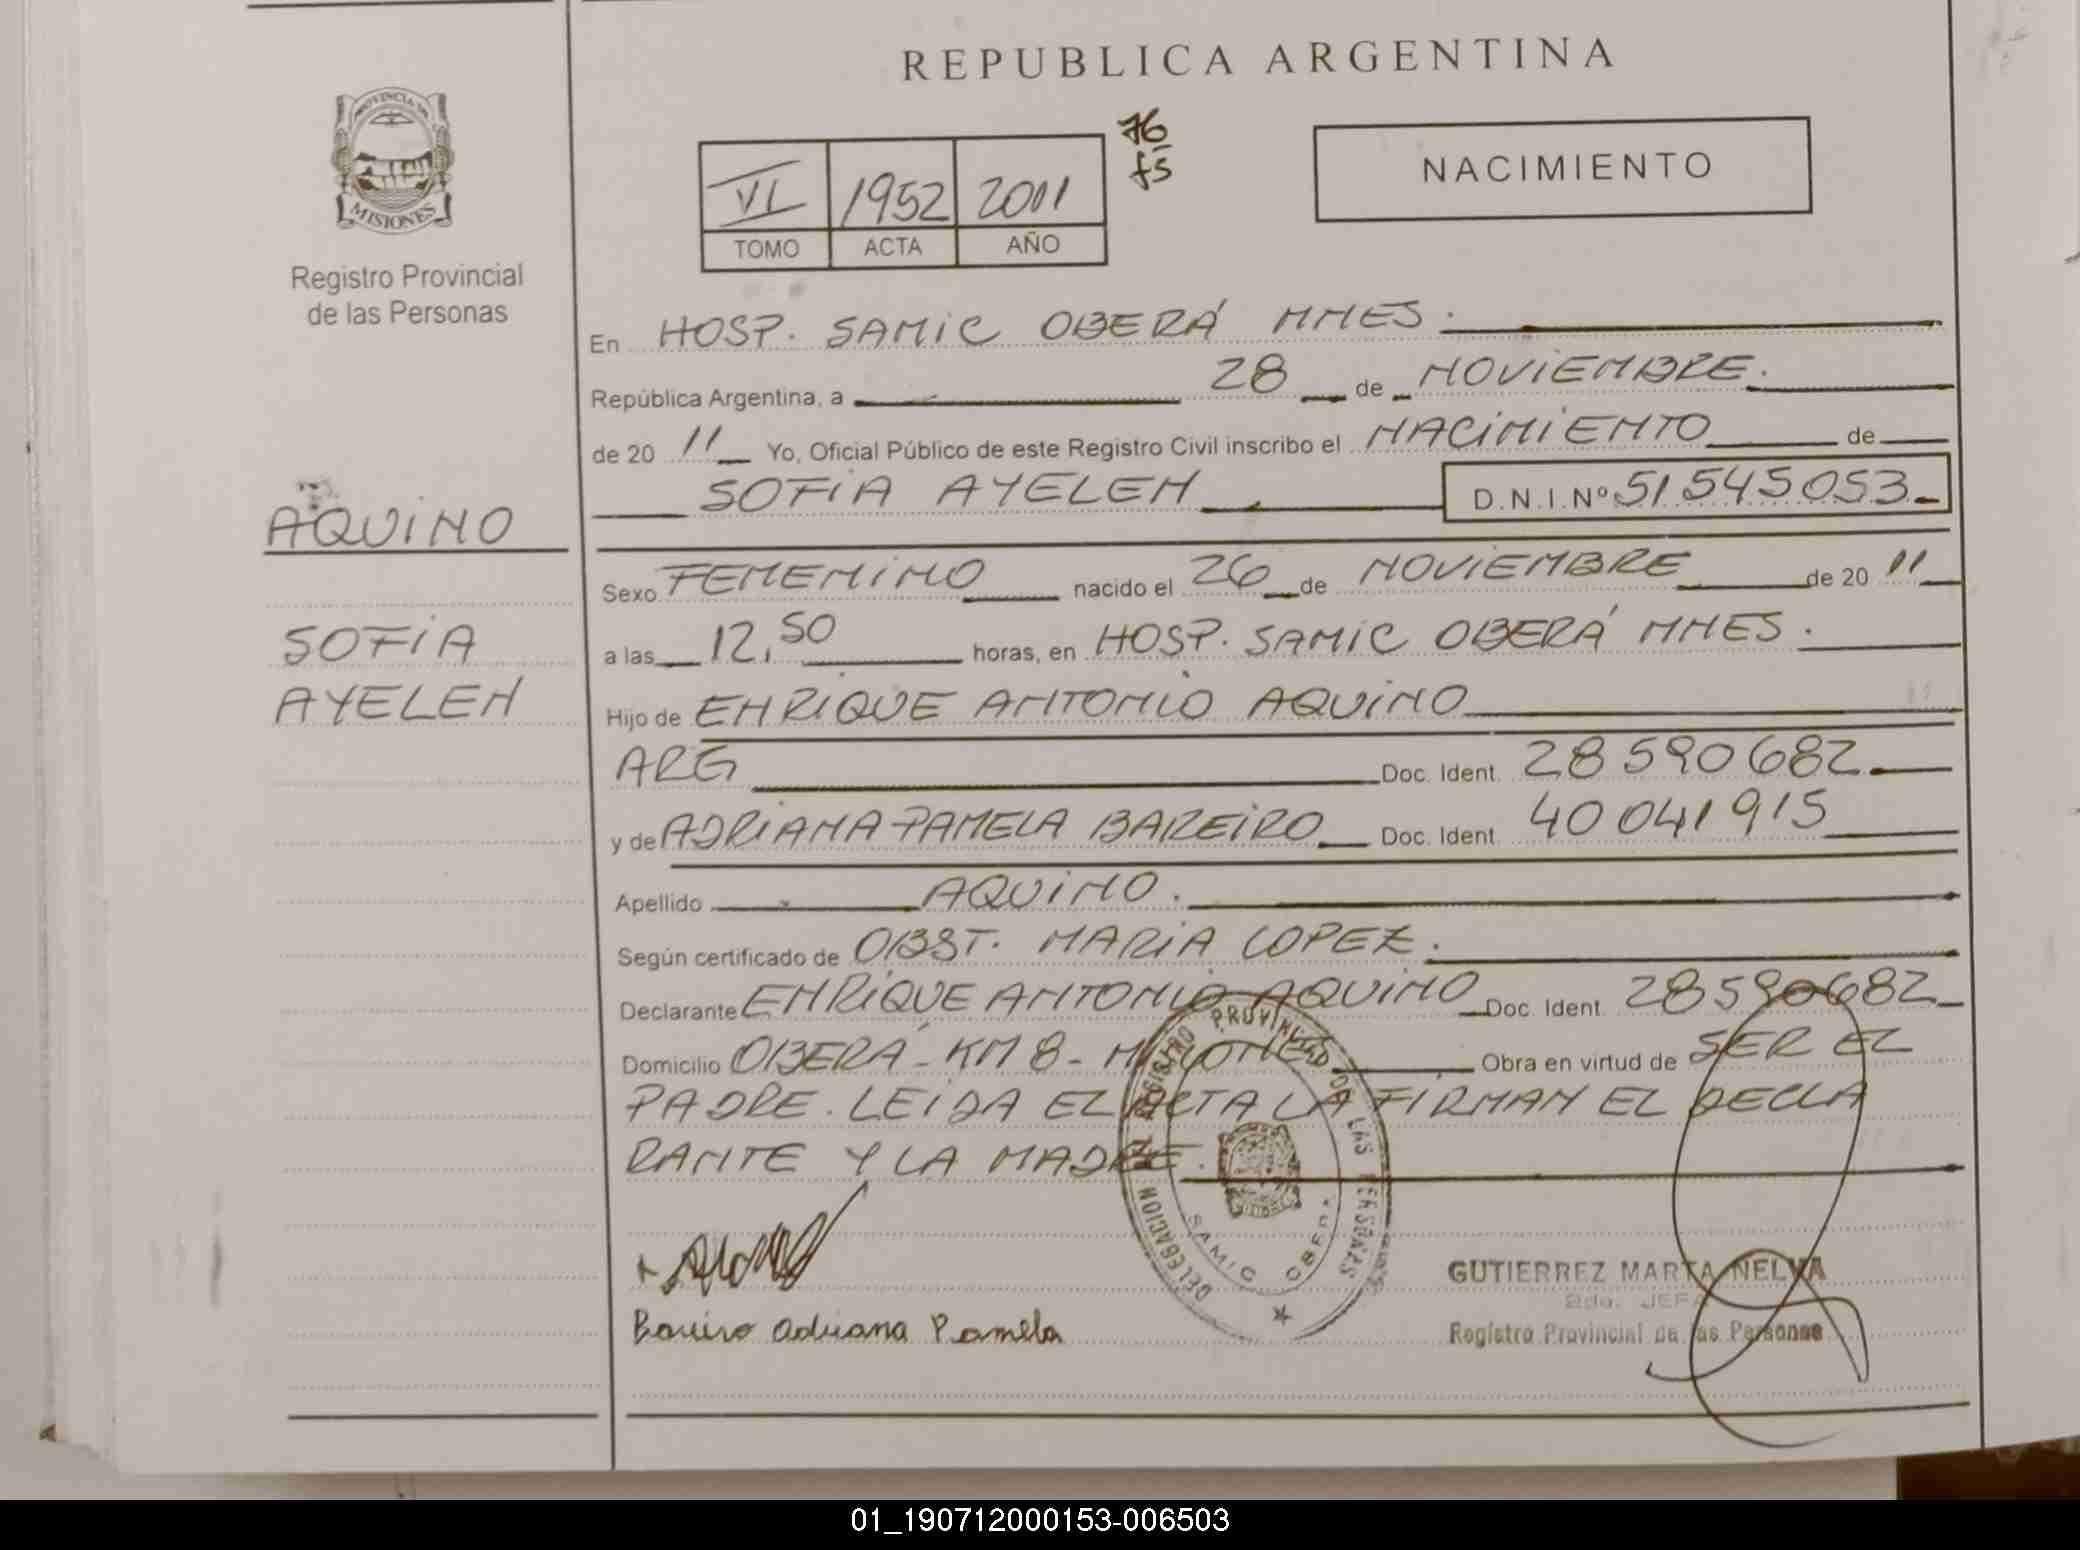 REPUBLICA ARGENTINA
PROVINCIA DE
MISIONES
Registro Provincial
de las Personas
76
fs
NACIMIENTO
VI 1952 2011
TOMO ACTA AÑO
En HOSP. SAMIC OBERÁ MNES.
República Argentina, a 28 de NOVIEMBRE.
de 20 11 Yo, Oficial Público de este Registro Civil inscribo el NACIMIENTO de
SOFIA AYELEN D.N.I.Nº 51545053
AQUINO
SOFIA
AYELEN
Sexo FEMENINO nacido el 26 de NOVIEMBRE de 20 11
a las 12,50 horas, en HOSP. SAMIC OBERÁ MNES.
Hijo de ENRIQUE ANTONIO AQUINO
ARG Doc. Ident. 28590682
y de ADRIANA PAMELA BAREIRO Doc. Ident. 40041915
Apellido AQUINO.
Según certificado de OBST. MARIA LOPEZ.
Declarante ENRIQUE ANTONIO AQUINO Doc. Ident. 28590682
Domicilio OBERÁ - KM 8 - MISIONES Obra en virtud de SER EL
PADRE. LEIDA EL ACTA LA FIRMAN EL DECLA
RANTE Y LA MADRE.
DELEGACION REGISTRO PROVINCIAL DE LAS PERSONAS
SAMIC OBERA
Bareiro Adriana Pamela
GUTIERREZ MARTA NELVA
2do. JEFA
Registro Provincial de las Personas
01_190712000153-006503